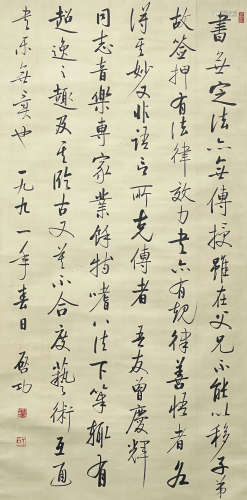 書無定法亦無傳授雖在父兄不能以移子弟
故簽押有法律效力書亦有規律善悟者各
得其妙又非語言所克傳者 吾友曾慶輝
同志音樂專家業餘特嗜八法下筆輒有
超逸之趣及其臨古又莫不合度藝術互通
書樂無異也 一九九一年春日 啟功